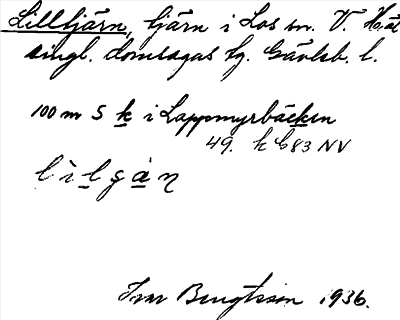 Lilltjärn, tjärn i Los sn. V. Häl
singl. domsagas tg. Gävleb. l.
100 m S k i Lappmyrbäcken
49. k b 83 NV
lìlʂàṇ
Ivar Bengtsson 1936.